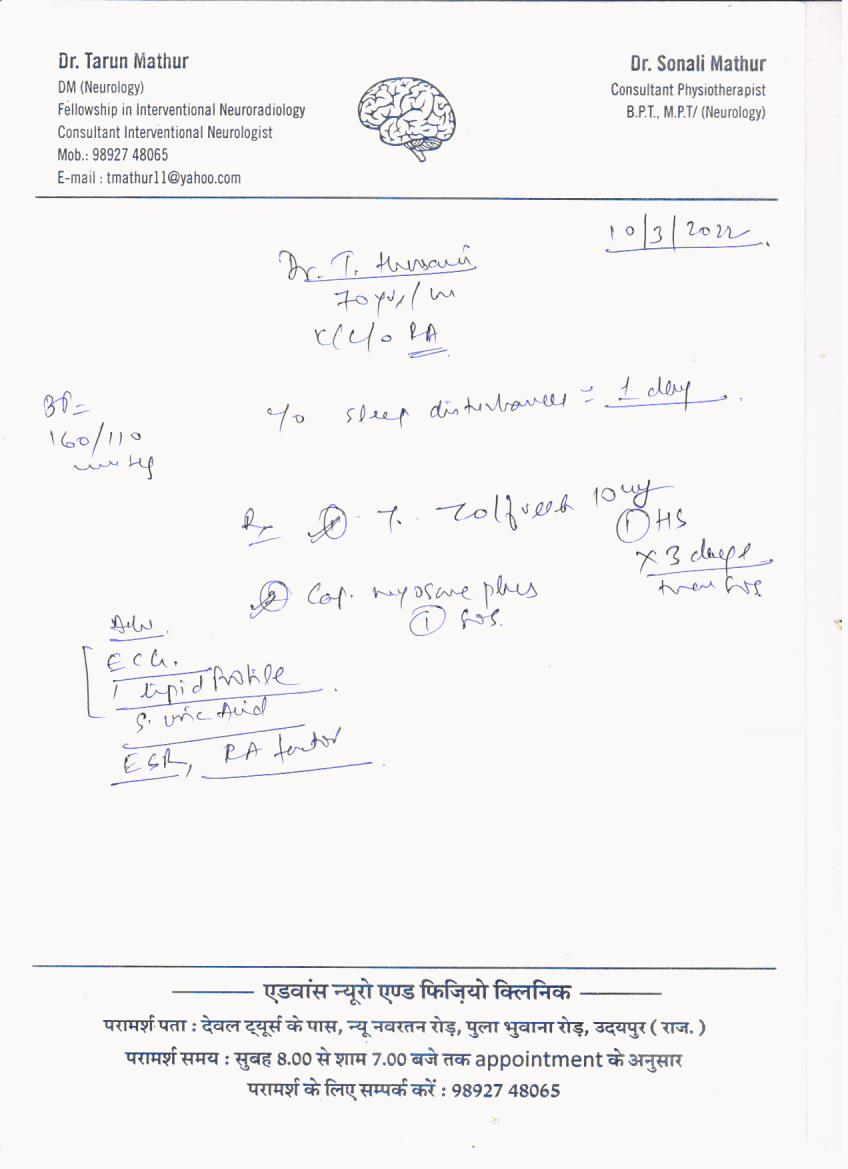 Dr. Tarun Mathur
DM (Neurology)
Fellowship in Interventional Neuroradiology
Consultant Interventional Neurologist
Mob.: 98927 48065
E-mail : tmathur11@yahoo.com
Dr. Sonali Mathur
Consultant Physiotherapist
B.P.T., M.P.T/ (Neurology)
10/3/2022
Dr. T. Hussain
70 yrs/m
K/C/o RA
BP=
160/110
mmHg
c/o sleep disturbances = 1 day.
Rx ① T. Zolfresh 10mg
① HS
x 3 days
then sos.
② Cap. myosone plus
① sos.
Adv.
ECG.
lipid Profile
S. uric Acid
ESR, RA factor
एडवांस न्यूरो एण्ड फिज़ियो क्लिनिक
परामर्श पता : देवल ट्यूर्स के पास, न्यू नवरतन रोड़, पुला भुवाना रोड़, उदयपुर ( राज. )
परामर्श समय : सुबह 8.00 से शाम 7.00 बजे तक appointment के अनुसार
परामर्श के लिए सम्पर्क करें : 98927 48065